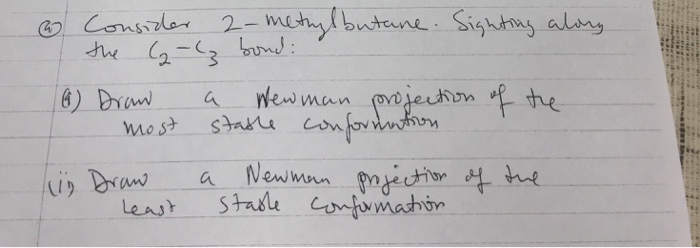 (a) Consider 2-methylbutane. Sighting along
the C2-C3 bond:
(i) Draw a Newman projection of the
most stable conformation
(ii) Draw a Newman projection of the
Least stable conformation